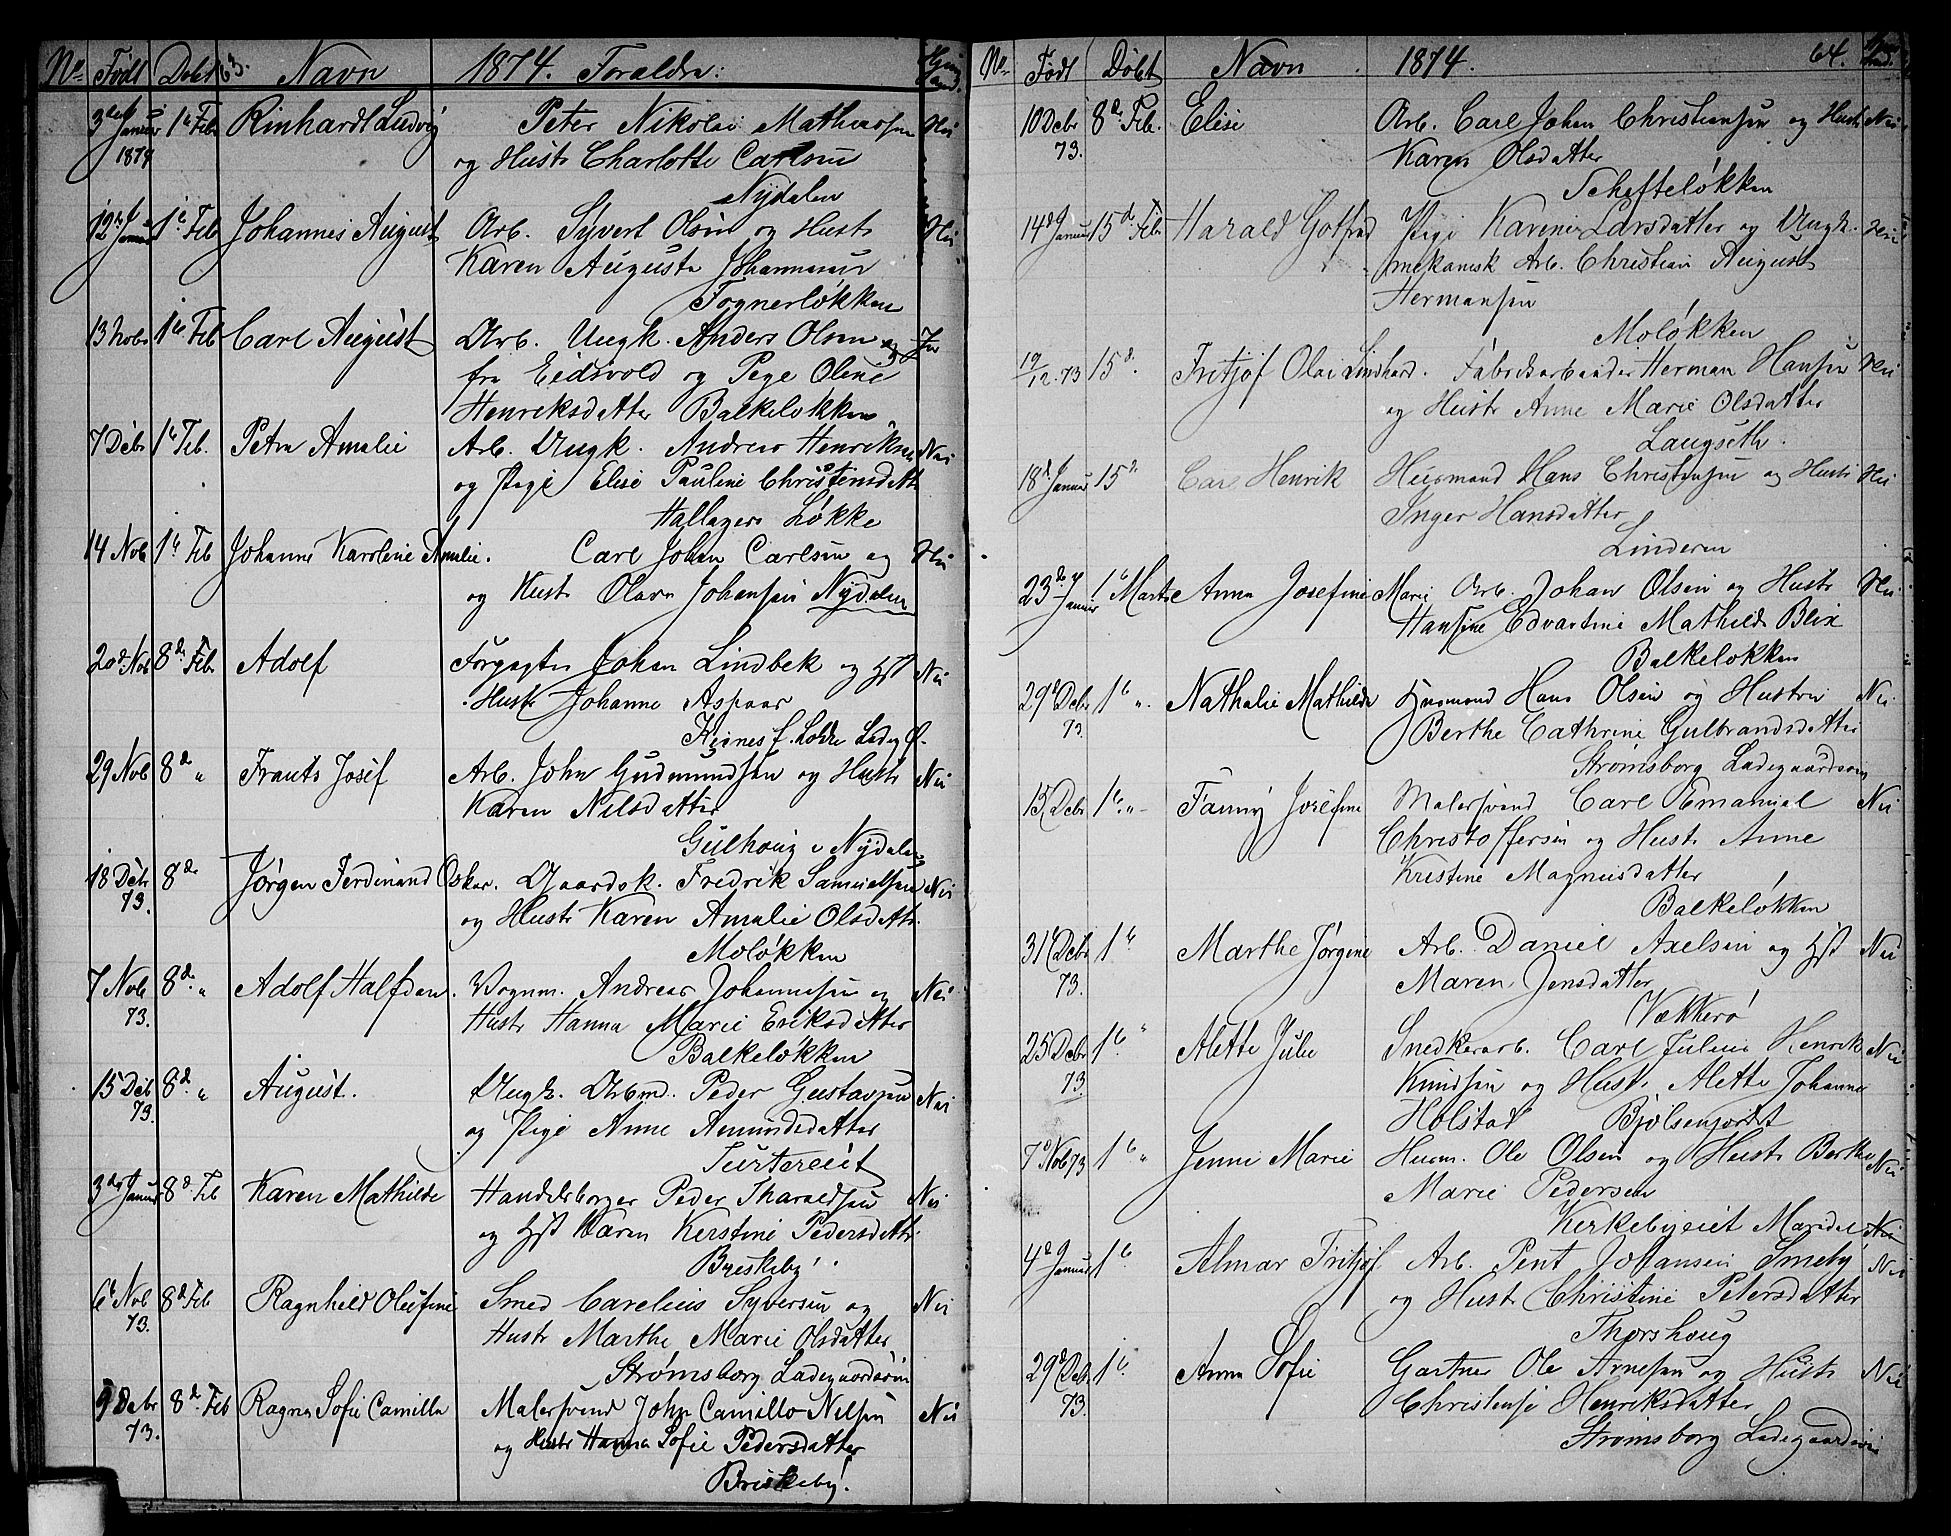 No Født Døbt 63. Navn 1874. Forældre:
3de Januar 1ste Feb Rinhardt Ludvig Peter Nikolai Mathiassen Nei
1874 og Hustr Charlotte Carlsen
Nydalen
12te Januar 1ste Feb Johannes August Arb. Syvert Olsen og Hustr Nei
Karen Augusta Johannesen
Fognerløkken
13 Nobr 1ste Feb Carl August Arb. Ungk. Anders Olsen og
fra Eidsvold og Pige Oline
Henriksdatter Balkeløkken
7 Debr 1ste Feb. Petra Amalie Arb. Ungk. Andreas Henriksen Nei
og Pige Elise Pauline Christensdatt
Hallagers Løkke
14 Nob 1ste Feb Johanne Karoline Amalie. Carl Johan Carlsen og Nei
og Hustr Olava Johansen Nydalen
20de Nob 8de Feb Adolf Forpagter Johan Lindbek og Hst Nei
Hustr Johanne Aspaas
Lökke Ladeg Ø.
29 Nob 8de " Frants Josef Arb. John Gudmundsen og Hustr Nei
Karen Nilsdatter
Gulhoug i Nydalen
18 Debr 8de Jørgen Ferdinand Oskar. Gaardsk. Fredrik Samuelsen Nei
73. og Hustr Karen Amalie Olsdatr.
Moløkken
7 Nob 8de " Adolf Halfdan. Vognm. Andreas Johannesen og Nei
73. Hustr Hanna Marie Eriksdatter
Balkeløkken
15 Deb 8de " August. Ungk. Arbmd. Peder Gustavsen Nei
73. og Pige Anne Amundsdatter
Turtereiet
3de Januar 8de Feb Karen Mathilde Handelsborger Peder Tharaldsen Nei
og Hst Karen Kerstine Pedersdatter
Briskeby
6te Nob 8de Feb Ragnhild Olefine Smed Carelius Syversen og Nei
73. Hustr Marthe Marie Olsdatter
Strømsborg Ladegaardsøen
9 Debr 8de Feb Ragna Sofie Camilla Malersvend John Camillo Nilsen Nei
73. og Hustr Hanna Sofie Pedersdatter
Briskeby.
No Født Døbt Navn 1874. 64.
10 Debr 8de Feb. Elise Arb. Carl Johan Christiansen og Hustr Nei
73. Karen Olsdatter
Schafteløkken
14de Januar 15de Feb Harald Gotfred Pige Karenie Larsdatter og Ungk. Nei
mekanisk Arb. Christian August
Hermansen
Moløkken
19/12.73 15de. Fritjof Olai Lindhard. Fabrikarbeider Herman Hansen Nei
og Hustr Anne Marie Olsdatter
Langseth.
18de Januar 15de Carl Henrik Husmand Hans Christensen og Hustr Nei
Inger Hansdatter
Linderen
23de Januar 1ste Marts Anna Josefine Marie Arb. Johan Olsen og Hustr Nei
Hansine Edvartine Mathilde Blix
Balkeløkken
29de Debr 1ste ". Nathalie Mathilde Husmand Hans Olsen og Hustru Nei.
73. Berthe Cathrine Gulbrandsdatter
Strømsborg Ladegaardsøen
15 Debr 1ste " Fanny Josefine Malersvend Carl Emanuel Nei
Christoffersen og Hustr Anne
Kristine Magnusdatter
Balkeløkken
31te Debr 1ste Marthe Jørgine Arb. Daniel Axelsen og Hst Nei
73. Maren Jensdatter
Vækkerø
25 Debr 1ste " Alette Julie Snedkerarb. Carl Julius Henrik Nei
73 Knudsen og Hustr. Alette Johanne
Holstad Bjølsenjordet
7de Nob 73 1ste " Jenni Marie Husm. Ole Olsen og Hustr Berthe Nei
Marie Pedersen
Kerkebyeiet Maridal Nei
4de Januar 1ste Almar Fritjof Arb. Pent Johansen Smeby Nei
og Hustr Christine Petersdatter
Thorshoug
29de Deb 1ste Anna Sofie Gartner Ole Arnesen og Hustr Nei
73. Christense Henriksdatter
Strømsborg Ladegaardsøen